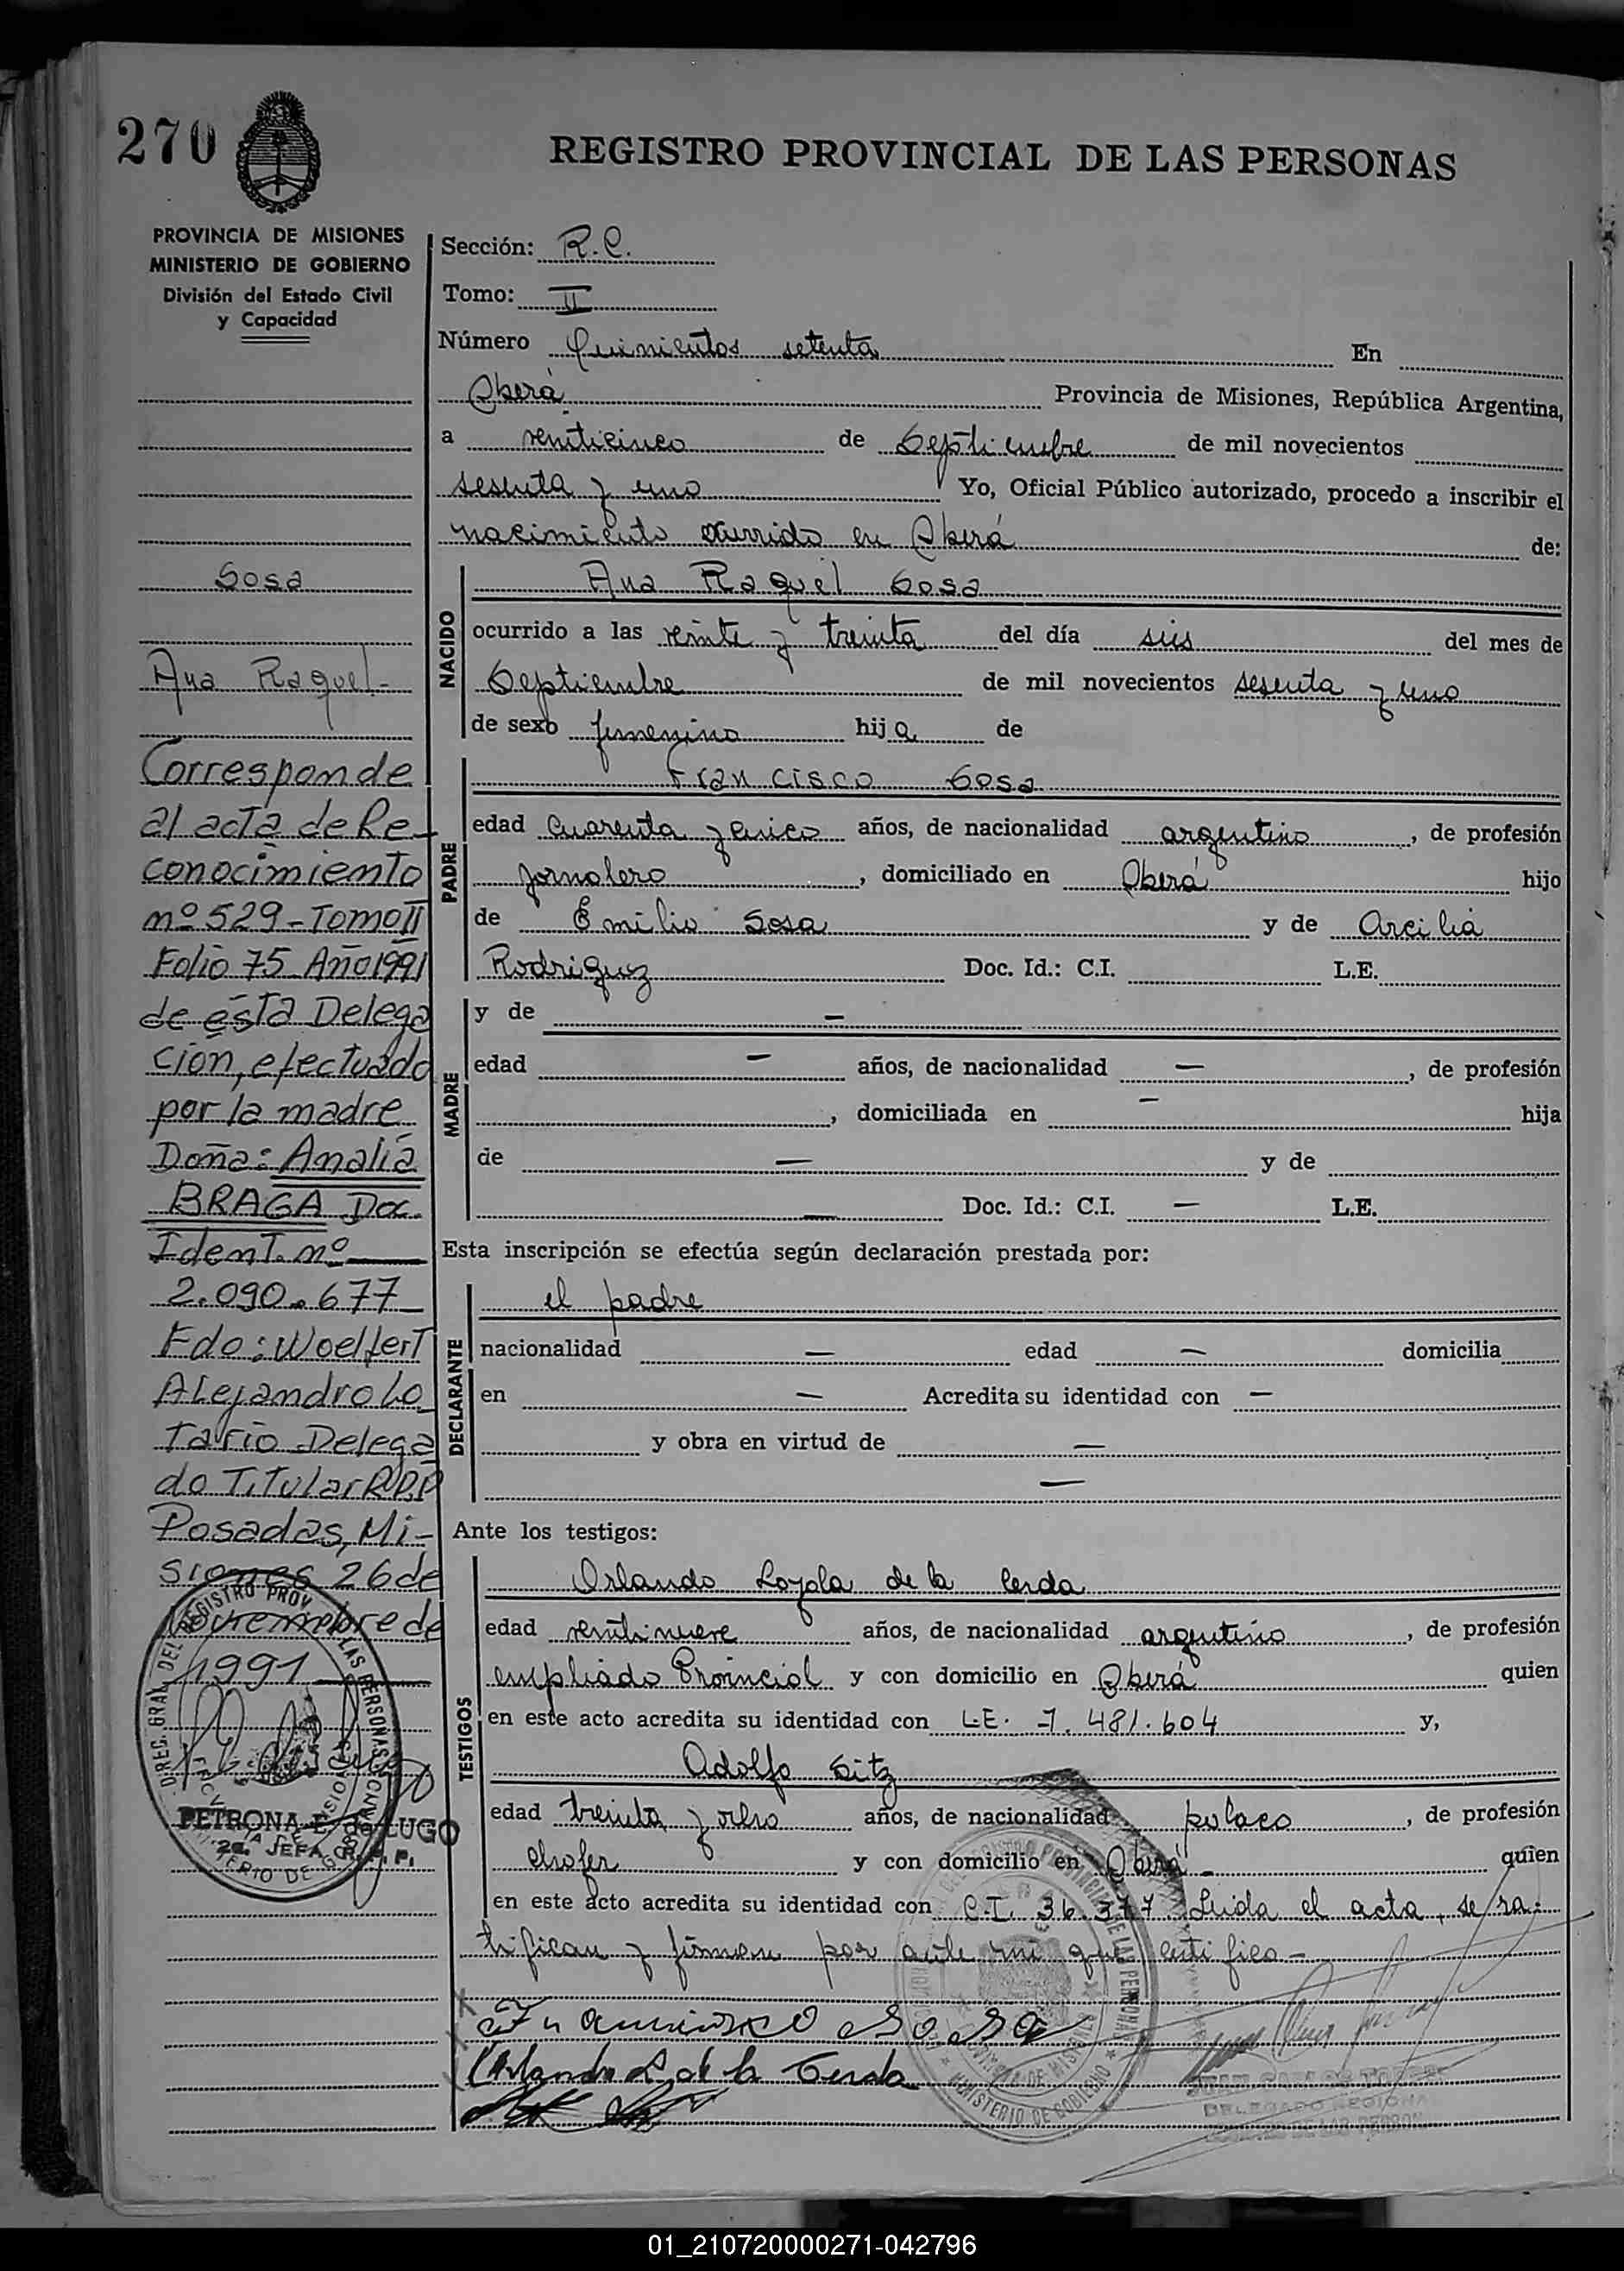 270
REGISTRO PROVINCIAL DE LAS PERSONAS
PROVINCIA DE MISIONES
MINISTERIO DE GOBIERNO
División del Estado Civil
y Capacidad
Sección: R.C.
Tomo: II
Número Quinientos setenta En
Oberá Provincia de Misiones, República Argentina,
a veinticinco de Septiembre de mil novecientos
sesenta y uno Yo, Oficial Público autorizado, procedo a inscribir el
nacimiento ocurrido en Oberá de:
Sosa
Ana Raquel-
Corresponde
al acta de Re-
conocimiento
nº 529-Tomo II
Folio 75 Año 1991
de ésta Delega
ción, efectuado
por la madre
Doña: Analia
BRAGA Doc.
Ident. nº
2.090.677
Fdo: Woelfert
Alejandro Lo
tario Delega
do Titular R.P.P
Posadas, Mi-
siones 26 de
Noviembre de
1991
DIREC. GRAL. DEL REGISTRO PROV. LAS PERSONAS
PETRONA E. de LUGO
2a. JEFA R.P.P.
NACIDO
Ana Raquel Sosa
ocurrido a las veinte y treinta del día seis del mes de
Septiembre de mil novecientos sesenta y uno
de sexo femenino hija de
PADRE
Francisco Sosa
edad cuarenta y cinco años, de nacionalidad argentino, de profesión
jornalero, domiciliado en Oberá hijo
de Emilio Sosa y de Arcilia
Rodriguez Doc. Id.: C.I. L.E.
MADRE
y de —
edad — años, de nacionalidad —, de profesión
, domiciliada en — hija
de — y de
— Doc. Id.: C.I. — L.E.
Esta inscripción se efectúa según declaración prestada por:
DECLARANTE
el padre
nacionalidad — edad — domicilia
en — Acredita su identidad con —
y obra en virtud de —
—
Ante los testigos:
TESTIGOS
Orlando Loyola de la Cerda
edad veintinueve años, de nacionalidad argentino, de profesión
empleado Provincial y con domicilio en Oberá quien
en este acto acredita su identidad con L.E. 7.481.604 y,
Adolfo Seitz
edad treinta y ocho años, de nacionalidad polaco, de profesión
chofer y con domicilio en Oberá- quien
en este acto acredita su identidad con C.I. 36.377 Leida el acta, se ra-
tifican y firman por ante mi que certifico-
Francisco Sosa
Orlando L. de la Cerda
MINISTERIO DE GOBIERNO
DELEGADO REGIONAL
01_210720000271-042796